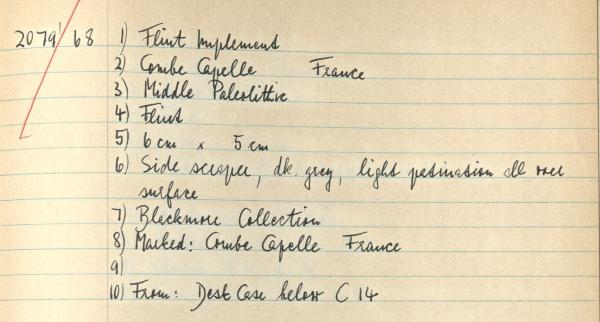 2079/68 1) Flint Implement
2) Combe Capelle France
3) Middle Paleolithic
4) Flint
5) 6 cm x 5 cm
6) Side scraper, dk. grey, light patination all over
surface
7) Blackmore Collection
8) Marked: Combe Capelle France
9)
10) From: Desk Case below C 14